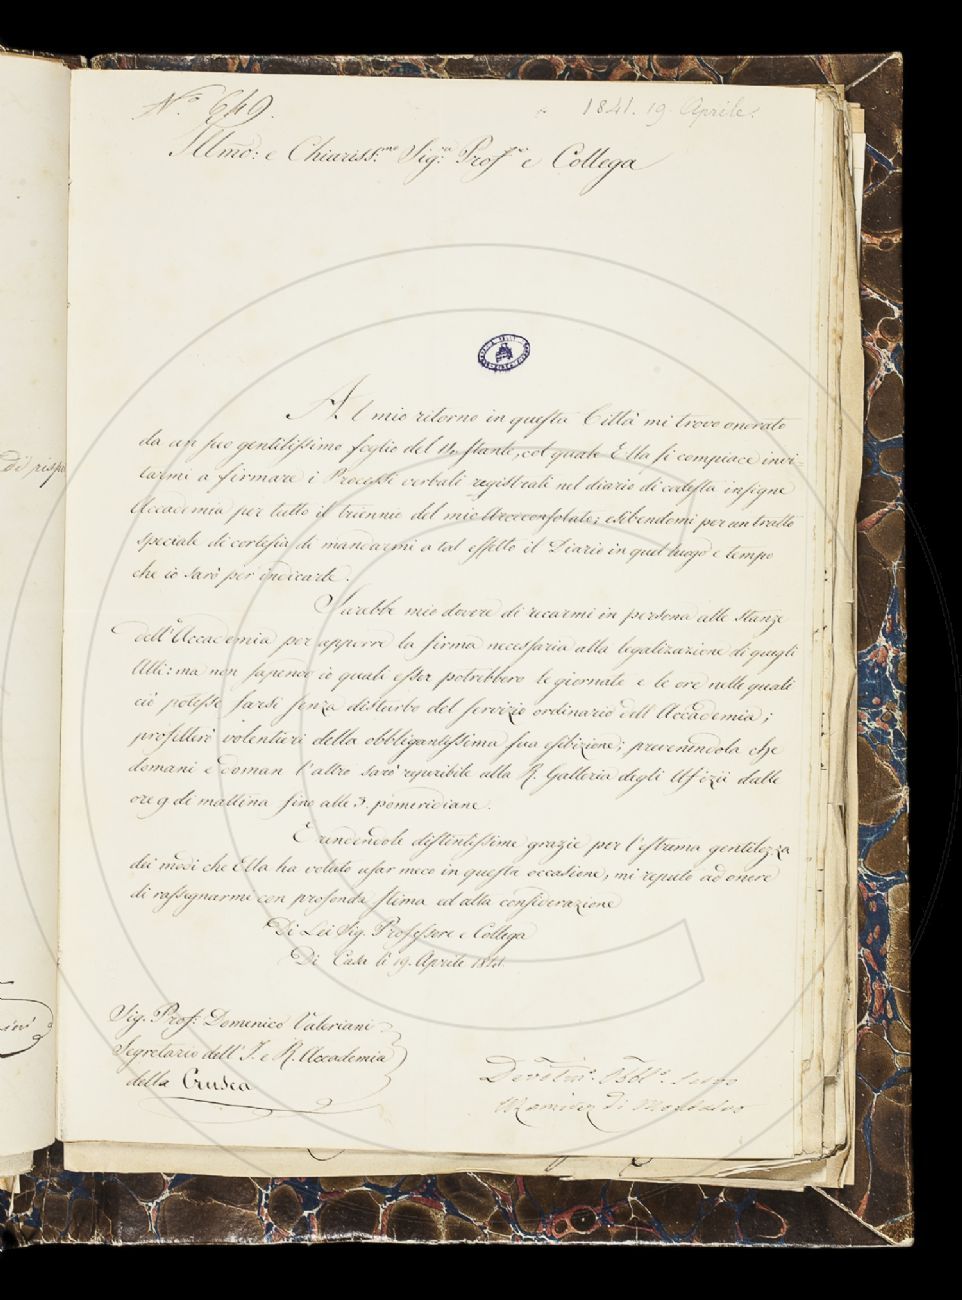 N.º 649.
1841. 19. Aprile.
Illmo: e Chiariss.mo Sig.re Prof.re e Collega
Al mio ritorno in questa Città mi trovo onorato
da un suo gentilissimo foglio del stante, col quale Ella si compiace invi-
tarmi a firmare i Processi verbali registrati nel diario di codesta insigne
Accademia per tutto il triennio del mio Arciconsolato; esibendomi per un tratto
speciale di cortesia di mandarmi a tal effetto il Diario in quel luogo e tempo
che io sarò per indicarle.
Sarebbe mio dovere di recarmi in persona alle stanze
dell'Accademia per apporre la firma necessaria alla legalizazione di quegli
Atti: ma non sapendo io quali esser potrebbero le giornate e le ore nelle quali
ciò potesse farsi senza disturbo del servizio ordinario dell'Accademia;
profitterò volentieri della obbligantissima sua esibizione; prevenendola che
domani e doman l'altro sarò reperibile alla R. Galleria degli Ufizii dalle
ore 9 di mattina fino alle 3. pomeridiane.
E rendendole distintissime grazie per l'estrema gentilezza
dei modi che Ella ha voluto usar meco in questa occasione, mi reputo ad onore
di rassegnarmi con profonda stima ed alta considerazione
Di Lei Sig. Professore e Collega
Di Casa li 19. Aprile 1841.
Sig. Prof. Domenico Valeriani
Segretario dell'I. e R. Accademia
della Crusca
Devotiss.º Obbl.º Servo
Ramirez di Montalvo